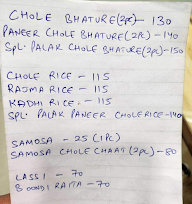 CHOLE BHATURE (2PC) - 130
PANEER CHOLE BHATURE (2PC) - 140
SPL. PALAK CHOLE BHATURE (2PC) - 150
CHOLE RICE - 115
RAJMA RICE - 115
KADHI RICE. - 115
SPL. PALAK PANEER CHOLE RICE - 140
SAMOSA - 25 (1PC)
SAMOSA CHOLE CHAAT (2PC) - 80
LASSI - 70
BOONDI RAITA - 70